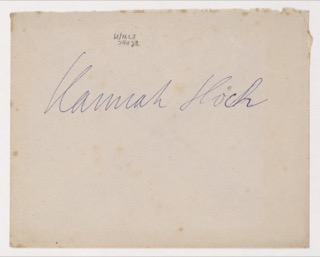 Hannah Höch